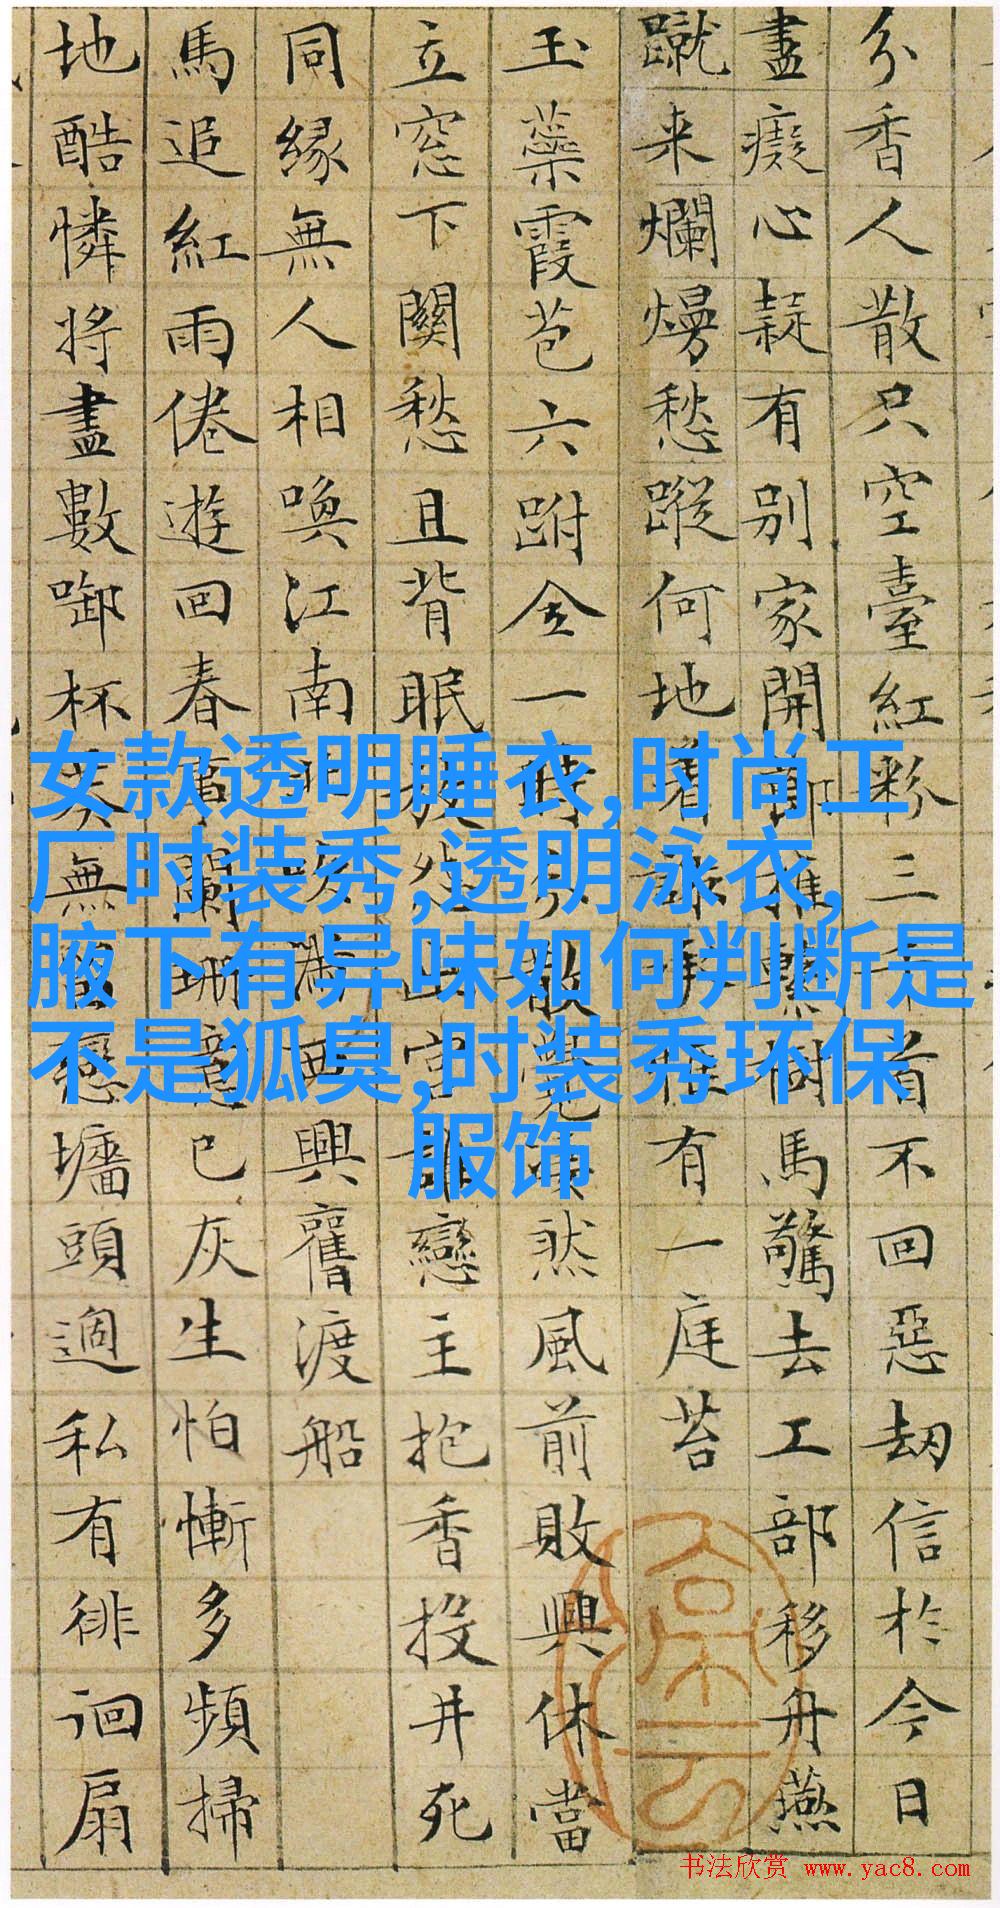 分香人散只空臺紅粉三千首不回惡劫信於今日
盡癡心疑有別家開節推繫樹馬驚去工部移舟燕
蹴来爛熳愁蹤何地着有一庭苔
玉蘂霞苞六跗全一時分散覺然風前敗興休當
立窓下關愁且背眠誰戀主抱香投井死
同緣無人相喚江南北吹滿西興舊渡船
馬追紅雨倦遊回春事闌珊意已灰生怕慚多頻掃
地酷憐將盡數啣杯無戀墻頭過私有徘徊扇
女款透明睡衣,时尚工
厂时装秀,透明泳衣,
腋下有异味如何判断是
不是狐臭,时装秀环保
服饰
书法欣赏 www.yac8.com